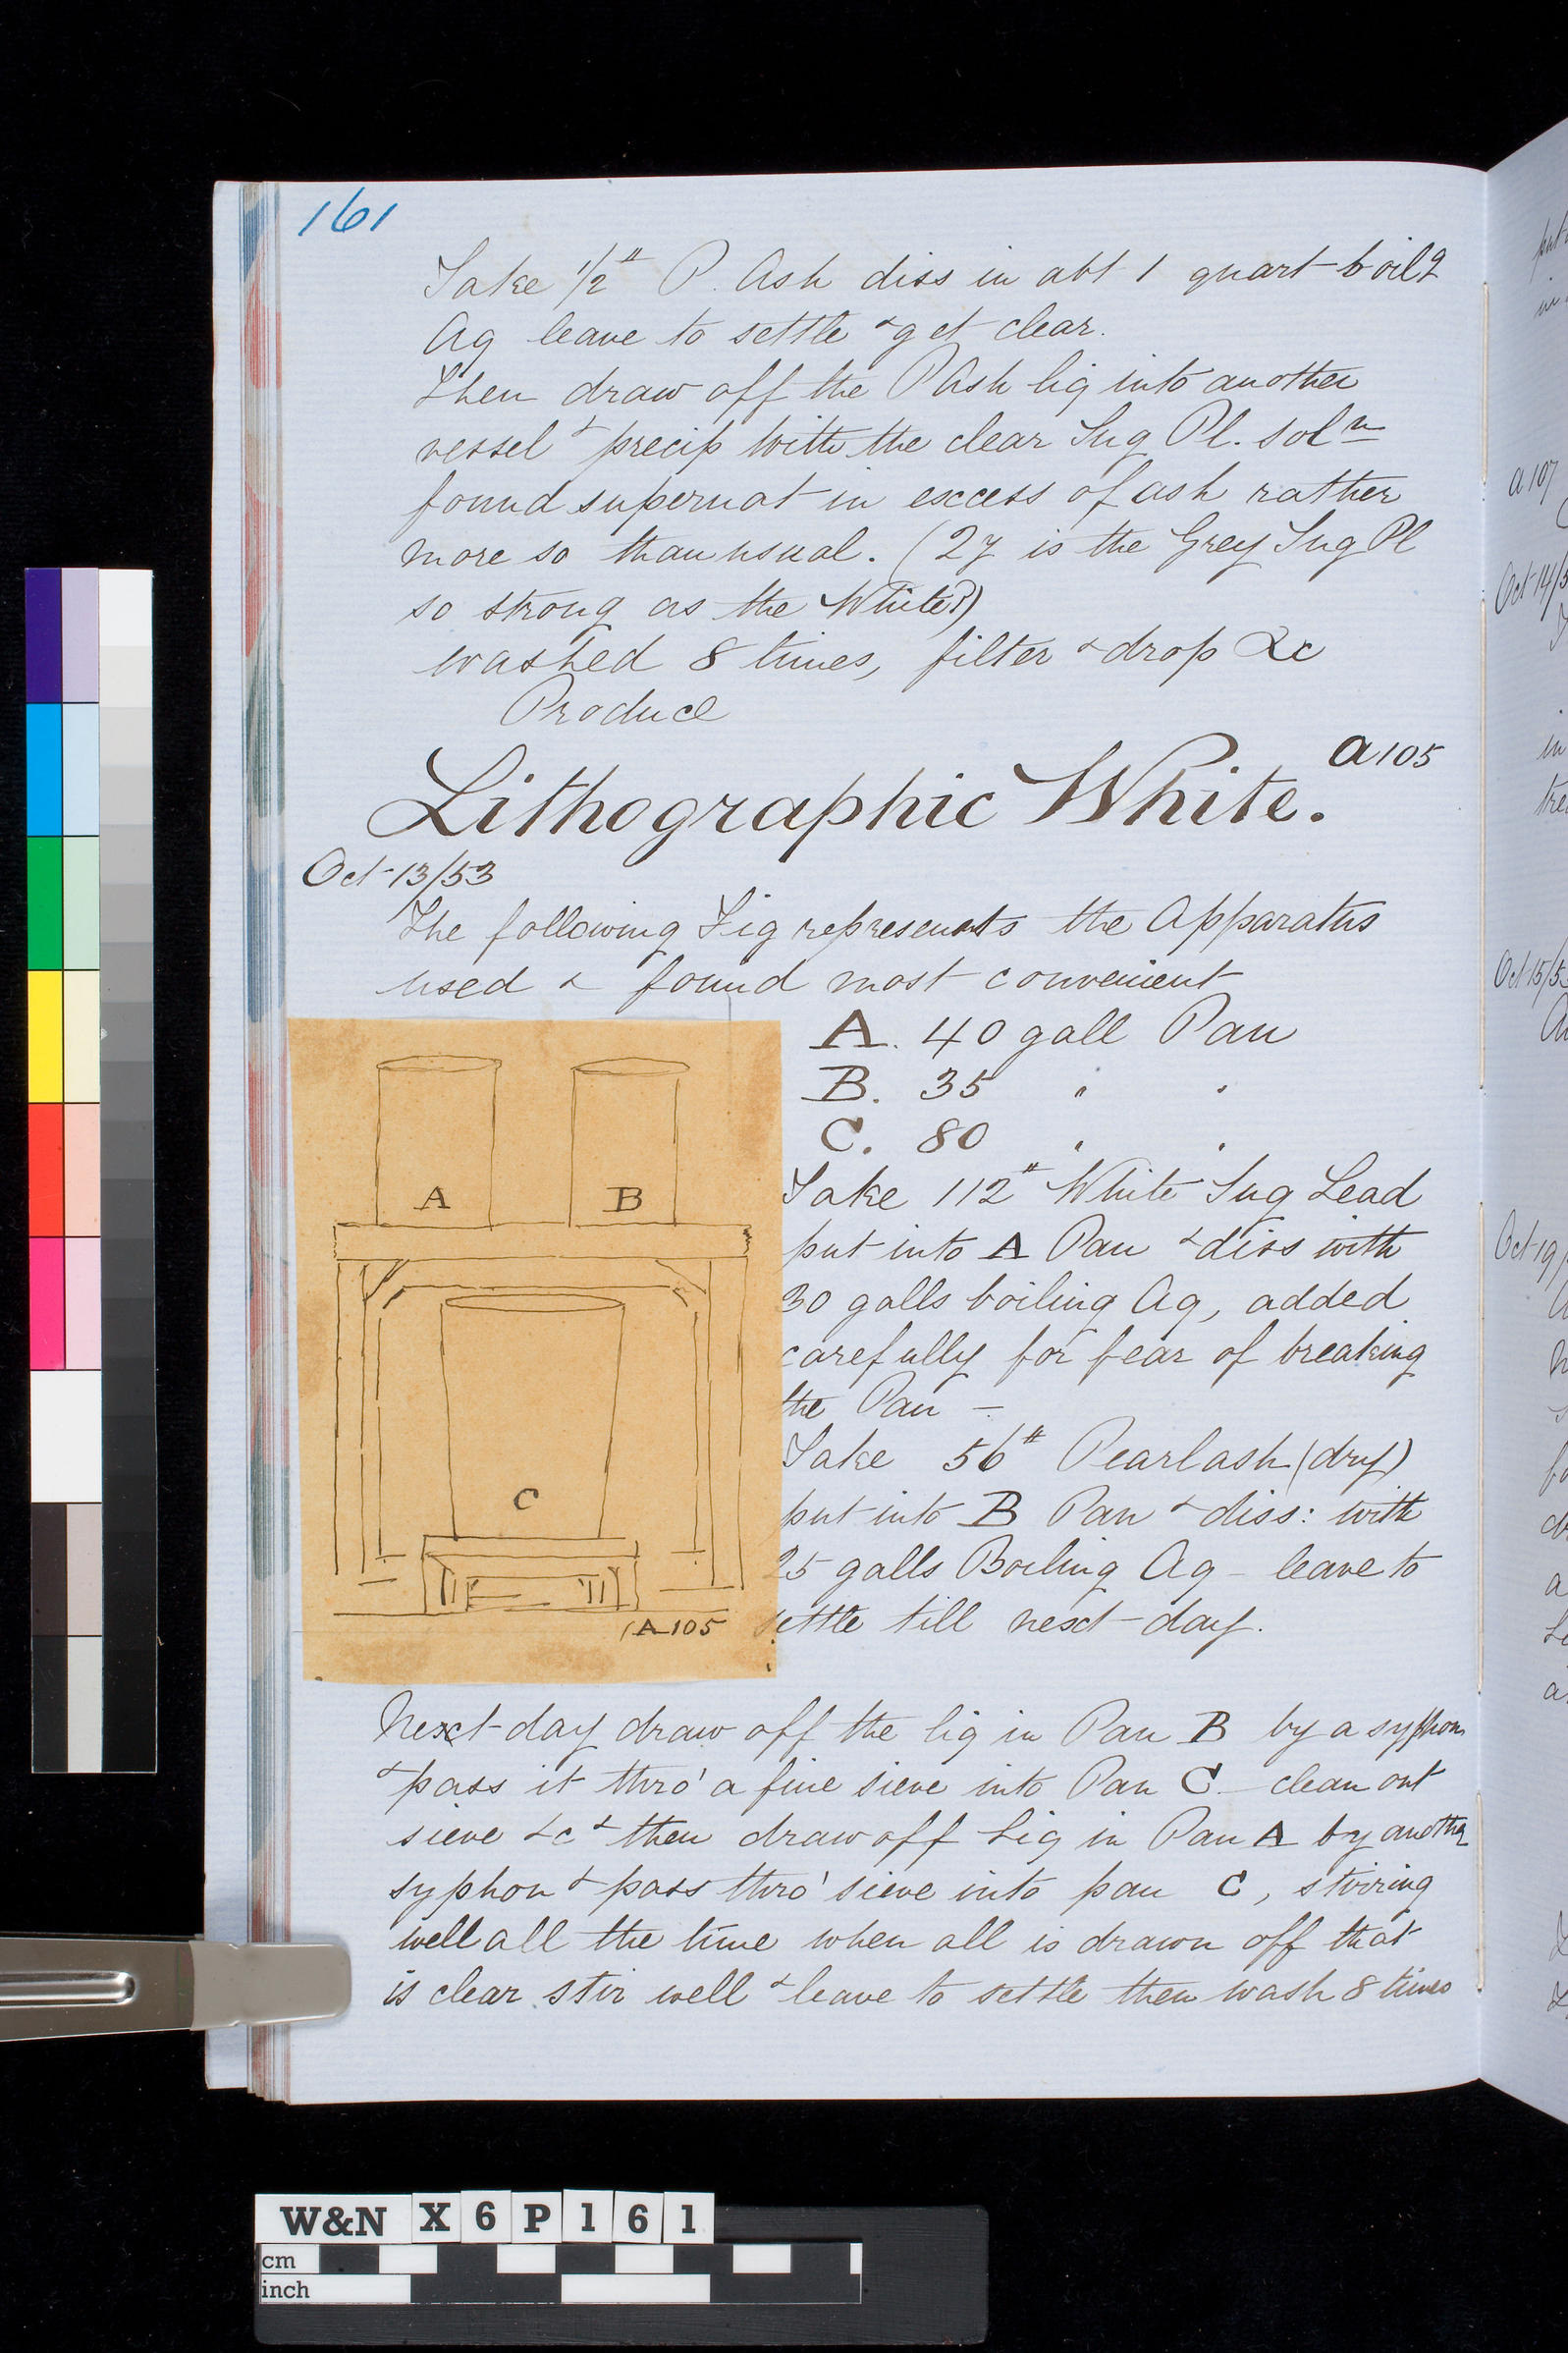 161
Take 1/2 # P. Ash diss in abt 1 quart boilg
Aq leave to settle & get clear.
Then draw off the P Ash liq into another
vessel & precip with the clear Sug Pl. soln
found supernat in excess of ash rather
more so than usual. (2y is the Grey Sug Pl
so strong as the White?)
washed 8 times, filter & drop &c
Produce
A105
Lithographic White.
Oct 13/53
The following Fig represents the Apparatus
used & found most convenient
A. 40 gall Pan
B. 35 " "
C. 80 " "
A B
C
(A105
Take 112 # White Sug Lead
put into A Pan & diss with
30 galls boiling Aq, added
carefully for fear of breaking
the Pan –
Take 56 # Pearlash (dry)
put into B Pan & diss: with
25 galls Boiling Aq – leave to
settle till next day.
Next day draw off the liq in Pan B by a syphon
& pass it thro' a fine sieve into Pan C – clean out
sieve &c & then draw off liq in Pan A by another
syphon & pass thro' sieve into pan C, stirring
well all the time when all is drawn off that
is clear stir well & leave to settle then wash 8 times
a 107
Oct 14/5
in
Oct 15/5
Oct 19/
W&N X6P161
cm
inch